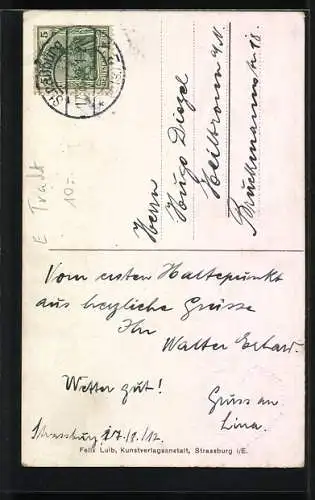 Herrn
Hugo Diezel
Heilbronn a/N.
Bruckmannstr. 18.
E Tradt
10.-
Vom ersten Haltepunkt
aus herzliche Grüsse
Ihr
Walter Erhard.
Wetter gut!
Gruss an
Lina.
Strassburg, 17/9./12.
Felix Luib, Kunstverlagsanstalt, Strassburg i/E.